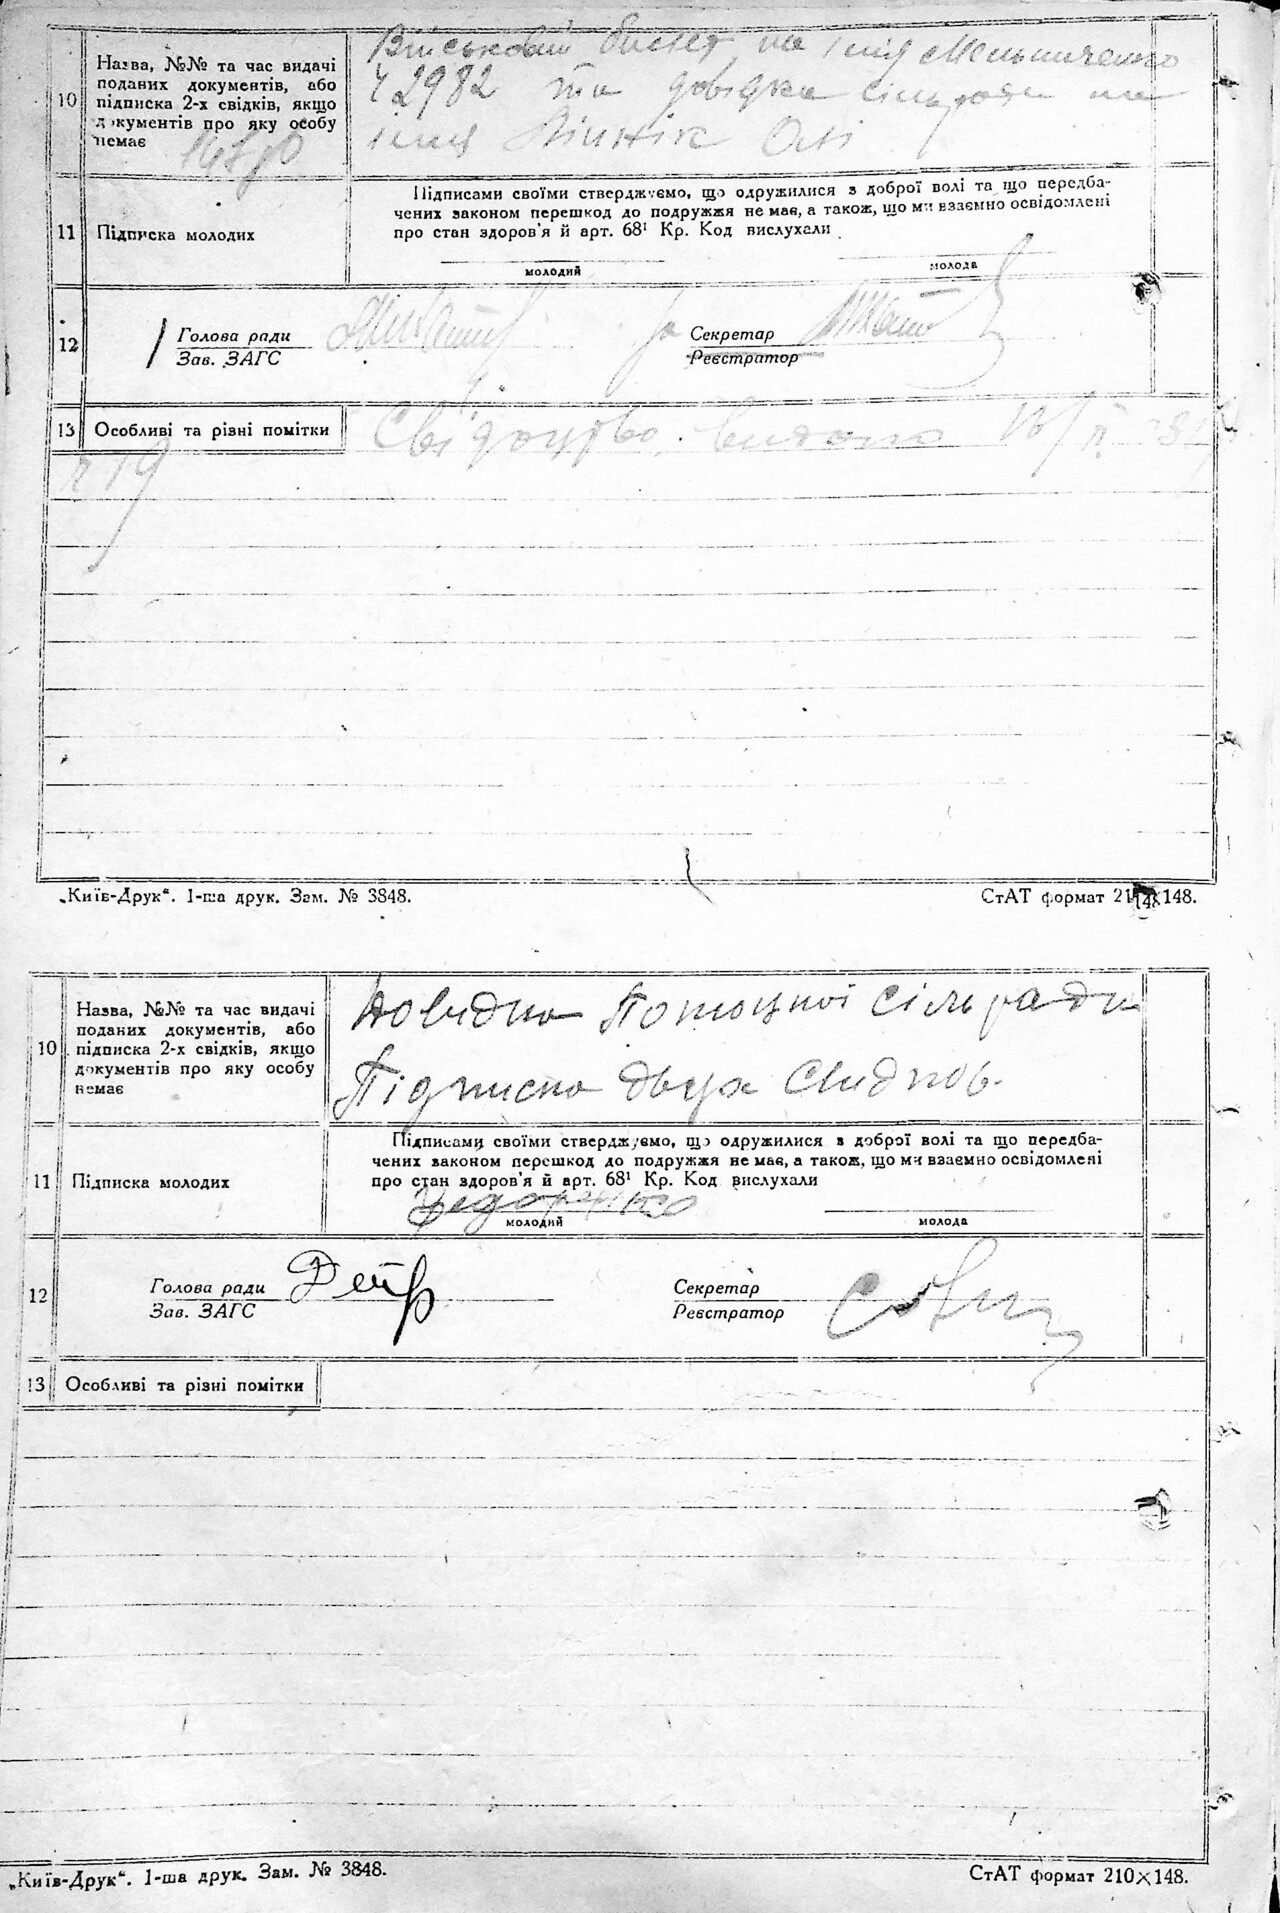 10
Назва, №№ та час видачі
поданих документів, або
підписка 2-х свідків, якщо
документів про яку особу
немає
Військовий билет на імя Мельниченко
42982 та довідка сільради на
імя Вінник Олі
11
Підписка молодих
Підписами своїми стверджуємо, що одружилися з доброї волі та що передба-
чених законом перешкод до подружжя не має, а також, що ми взаємно освідомлені
про стан здоров'я й арт. 68¹ Кр. Код вислухали
молодий
молода
12
Голова ради
Зав. ЗАГС
за Секретар
Реєстратор
13
Особливі та різні помітки
Свідоцтво видано
№ 19
„Київ-Друк“. 1-ша друк. Зам. № 3848.
СтАТ формат 210×148.
10
Назва, №№ та час видачі
поданих документів, або
підписка 2-х свідків, якщо
документів про яку особу
немає
Довидка Потоцької сільради
Підписка двух свидков.
11
Підписка молодих
Підписами своїми стверджуємо, що одружилися з доброї волі та що передба-
чених законом перешкод до подружжя не має, а також, що ми взаємно освідомлені
про стан здоров'я й арт. 68¹ Кр. Код вислухали
молодий
молода
12
Голова ради
Зав. ЗАГС
Секретар
Реєстратор
13
Особливі та різні помітки
„Київ-Друк“. 1-ша друк. Зам. № 3848.
СтАТ формат 210×148.